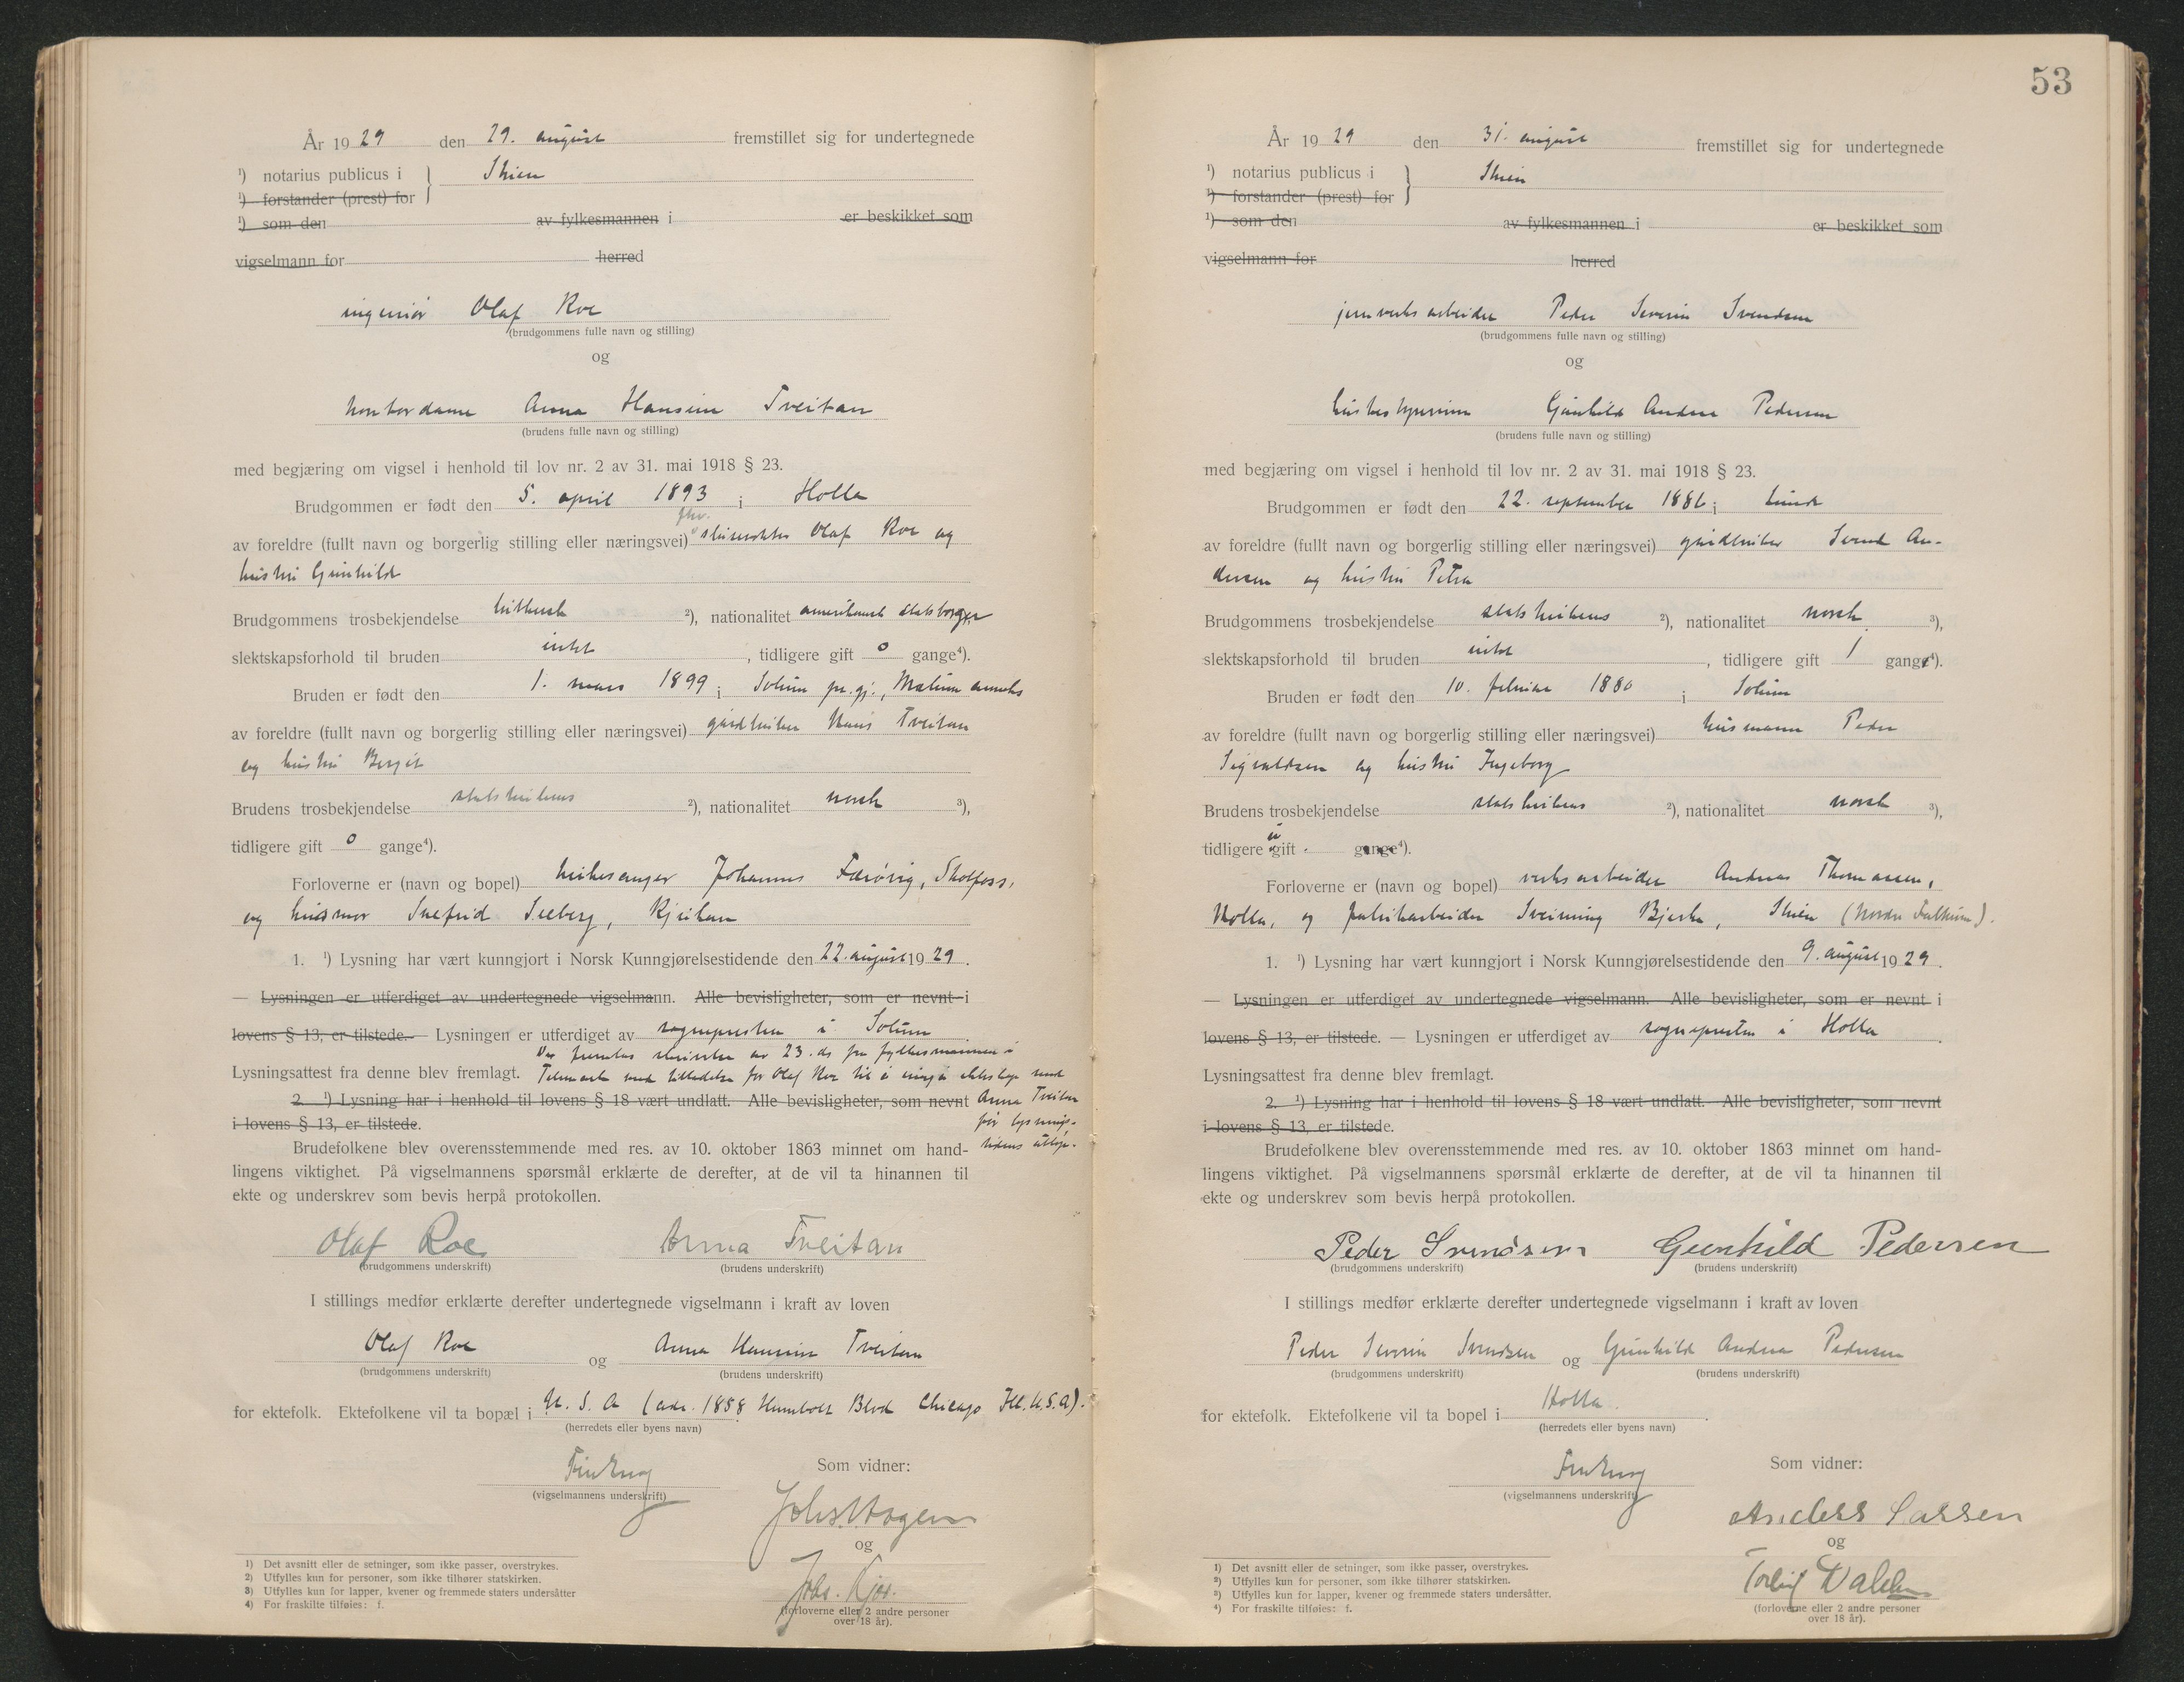 År 1929 den 29. august fremstillet sig for undertegnede
¹) notarius publicus i } Skien
¹) forstander (prest) for
¹) som den av fylkesmannen i er beskikket som
vigselmann for herred
ingeniør Olaf Roe
(brudgommens fulle navn og stilling)
og
kontordame Anna Hansine Tveitan
(brudens fulle navn og stilling)
med begjæring om vigsel i henhold til lov nr. 2 av 31. mai 1918 § 23.
Brudgommen er født den 5. april 1893 i Holla
fhv.
av foreldre (fullt navn og borgerlig stilling eller næringsvei) Olaf Roe og
hustru Gunhild
Brudgommens trosbekjendelse luthersk ²), nationalitet amerikansk statsborger
slektskapsforhold til bruden intet , tidligere gift 0 gange⁴).
Bruden er født den 1. mars 1899 i Solum pr.gj., Melum anneks
av foreldre (fullt navn og borgerlig stilling eller næringsvei) gårdbruker Hans Tveitan
og hustru Bergit
Brudens trosbekjendelse statskirkens ²), nationalitet norsk ³),
tidligere gift 0 gange⁴).
Forloverne er (navn og bopel) kirkesanger Johannes Færøvig, Skotfoss,
og husmor Snefrid Seeberg, Rjukan
1. ¹) Lysning har vært kunngjort i Norsk Kunngjørelsestidende den 22. august 1929.
— Lysningen er utferdiget av undertegnede vigselmann. Alle bevisligheter, som er nevnt i
lovens § 13, er tilstede. — Lysningen er utferdiget av sognepresten i Solum
Der fremlas skrivelse av 23. ds fra fylkesmannen i
Lysningsattest fra denne blev fremlagt. Telemark med tilladelse for Olaf Roe til å inngå ekteskap med
2. ¹) Lysning har i henhold til lovens § 18 vært undlatt. Alle bevisligheter, som nevnt Anna Tveitan
i lovens § 13, er tilstede. før lysnings-
Brudefolkene blev overensstemmende med res. av 10. oktober 1863 minnet om hand- tidens utløp.
lingens viktighet. På vigselmannens spørsmål erklærte de derefter, at de vil ta hinannen til
ekte og underskrev som bevis herpå protokollen.
Olaf Roe Anna Tveitan
(brudgommens underskrift) (brudens underskrift)
I stillings medfør erklærte derefter undertegnede vigselmann i kraft av loven
Olaf Roe og Anna Hansine Tveitan
(brudgommens underskrift) (brudens underskrift)
for ektefolk. Ektefolkene vil ta bopæl i U. S. A (adr. 1858 Humbolt Blvd Chicago Ill. U.S.A).
(herredets eller byens navn)
Som vidner:
(vigselmannens underskrift)
Johs. Hagen
og
Johs.
(forloverne eller 2 andre personer
over 18 år).
1) Det avsnitt eller de setninger, som ikke passer, overstrykes.
2) Utfylles kun for personer, som ikke tilhører statskirken.
3) Utfylles kun for lapper, kvener og fremmede staters undersåtter
4) For fraskilte tilføies: f.
53
År 1929 den 31. august fremstillet sig for undertegnede
¹) notarius publicus i } Skien
¹) forstander (prest) for
¹) som den av fylkesmannen i er beskikket som
vigselmann for herred
jernverksarbeider Peder Severin Svendsen
(brudgommens fulle navn og stilling)
og
husbestyrerinne Gunhild Andrea Pedersen
(brudens fulle navn og stilling)
med begjæring om vigsel i henhold til lov nr. 2 av 31. mai 1918 § 23.
Brudgommen er født den 22. september 1886 i Lunde
av foreldre (fullt navn og borgerlig stilling eller næringsvei) gårdbruker Svend An-
dersen og hustru Petra
Brudgommens trosbekjendelse statskirkens ²), nationalitet norsk ³),
slektskapsforhold til bruden intet , tidligere gift 1 gang⁴).
Bruden er født den 10. februar 1880 i Solum
av foreldre (fullt navn og borgerlig stilling eller næringsvei) husmann Peder
Sigvaldsen og hustru Ingeborg
Brudens trosbekjendelse statskirkens ²), nationalitet norsk ³),
tidligere ugift gange⁴).
Forloverne er (navn og bopel) verksarbeider Andreas Thomassen,
Holla, og fabrikarbeider Sveinung Bjerke, Skien (Nordre Falkum).
1. ¹) Lysning har vært kunngjort i Norsk Kunngjørelsestidende den 9. august 1929.
— Lysningen er utferdiget av undertegnede vigselmann. Alle bevisligheter, som er nevnt i
lovens § 13, er tilstede. — Lysningen er utferdiget av sognepresten i Holla.
Lysningsattest fra denne blev fremlagt.
2. ¹) Lysning har i henhold til lovens § 18 vært undlatt. Alle bevisligheter, som nevnt
i lovens § 13, er tilstede.
Brudefolkene blev overensstemmende med res. av 10. oktober 1863 minnet om hand-
lingens viktighet. På vigselmannens spørsmål erklærte de derefter, at de vil ta hinannen til
ekte og underskrev som bevis herpå protokollen.
Peder Svendsen Gunhild Pedersen
(brudgommens underskrift) (brudens underskrift)
I stillings medfør erklærte derefter undertegnede vigselmann i kraft av loven
Peder Severin Svendsen og Gunhild Andrea Pedersen
(brudgommens underskrift) (brudens underskrift)
for ektefolk. Ektefolkene vil ta bopel i Holla.
(herredets eller byens navn)
Som vidner:
(vigselmannens underskrift)
Anders Lassen
og
Torleif
(forloverne eller 2 andre personer
over 18 år).
1) Det avsnitt eller de setninger, som ikke passer, overstrykes.
2) Utfylles kun for personer, som ikke tilhører statskirken.
3) Utfylles kun for lapper, kvener og fremmede staters undersåtter.
4) For fraskilte tilføies: f.